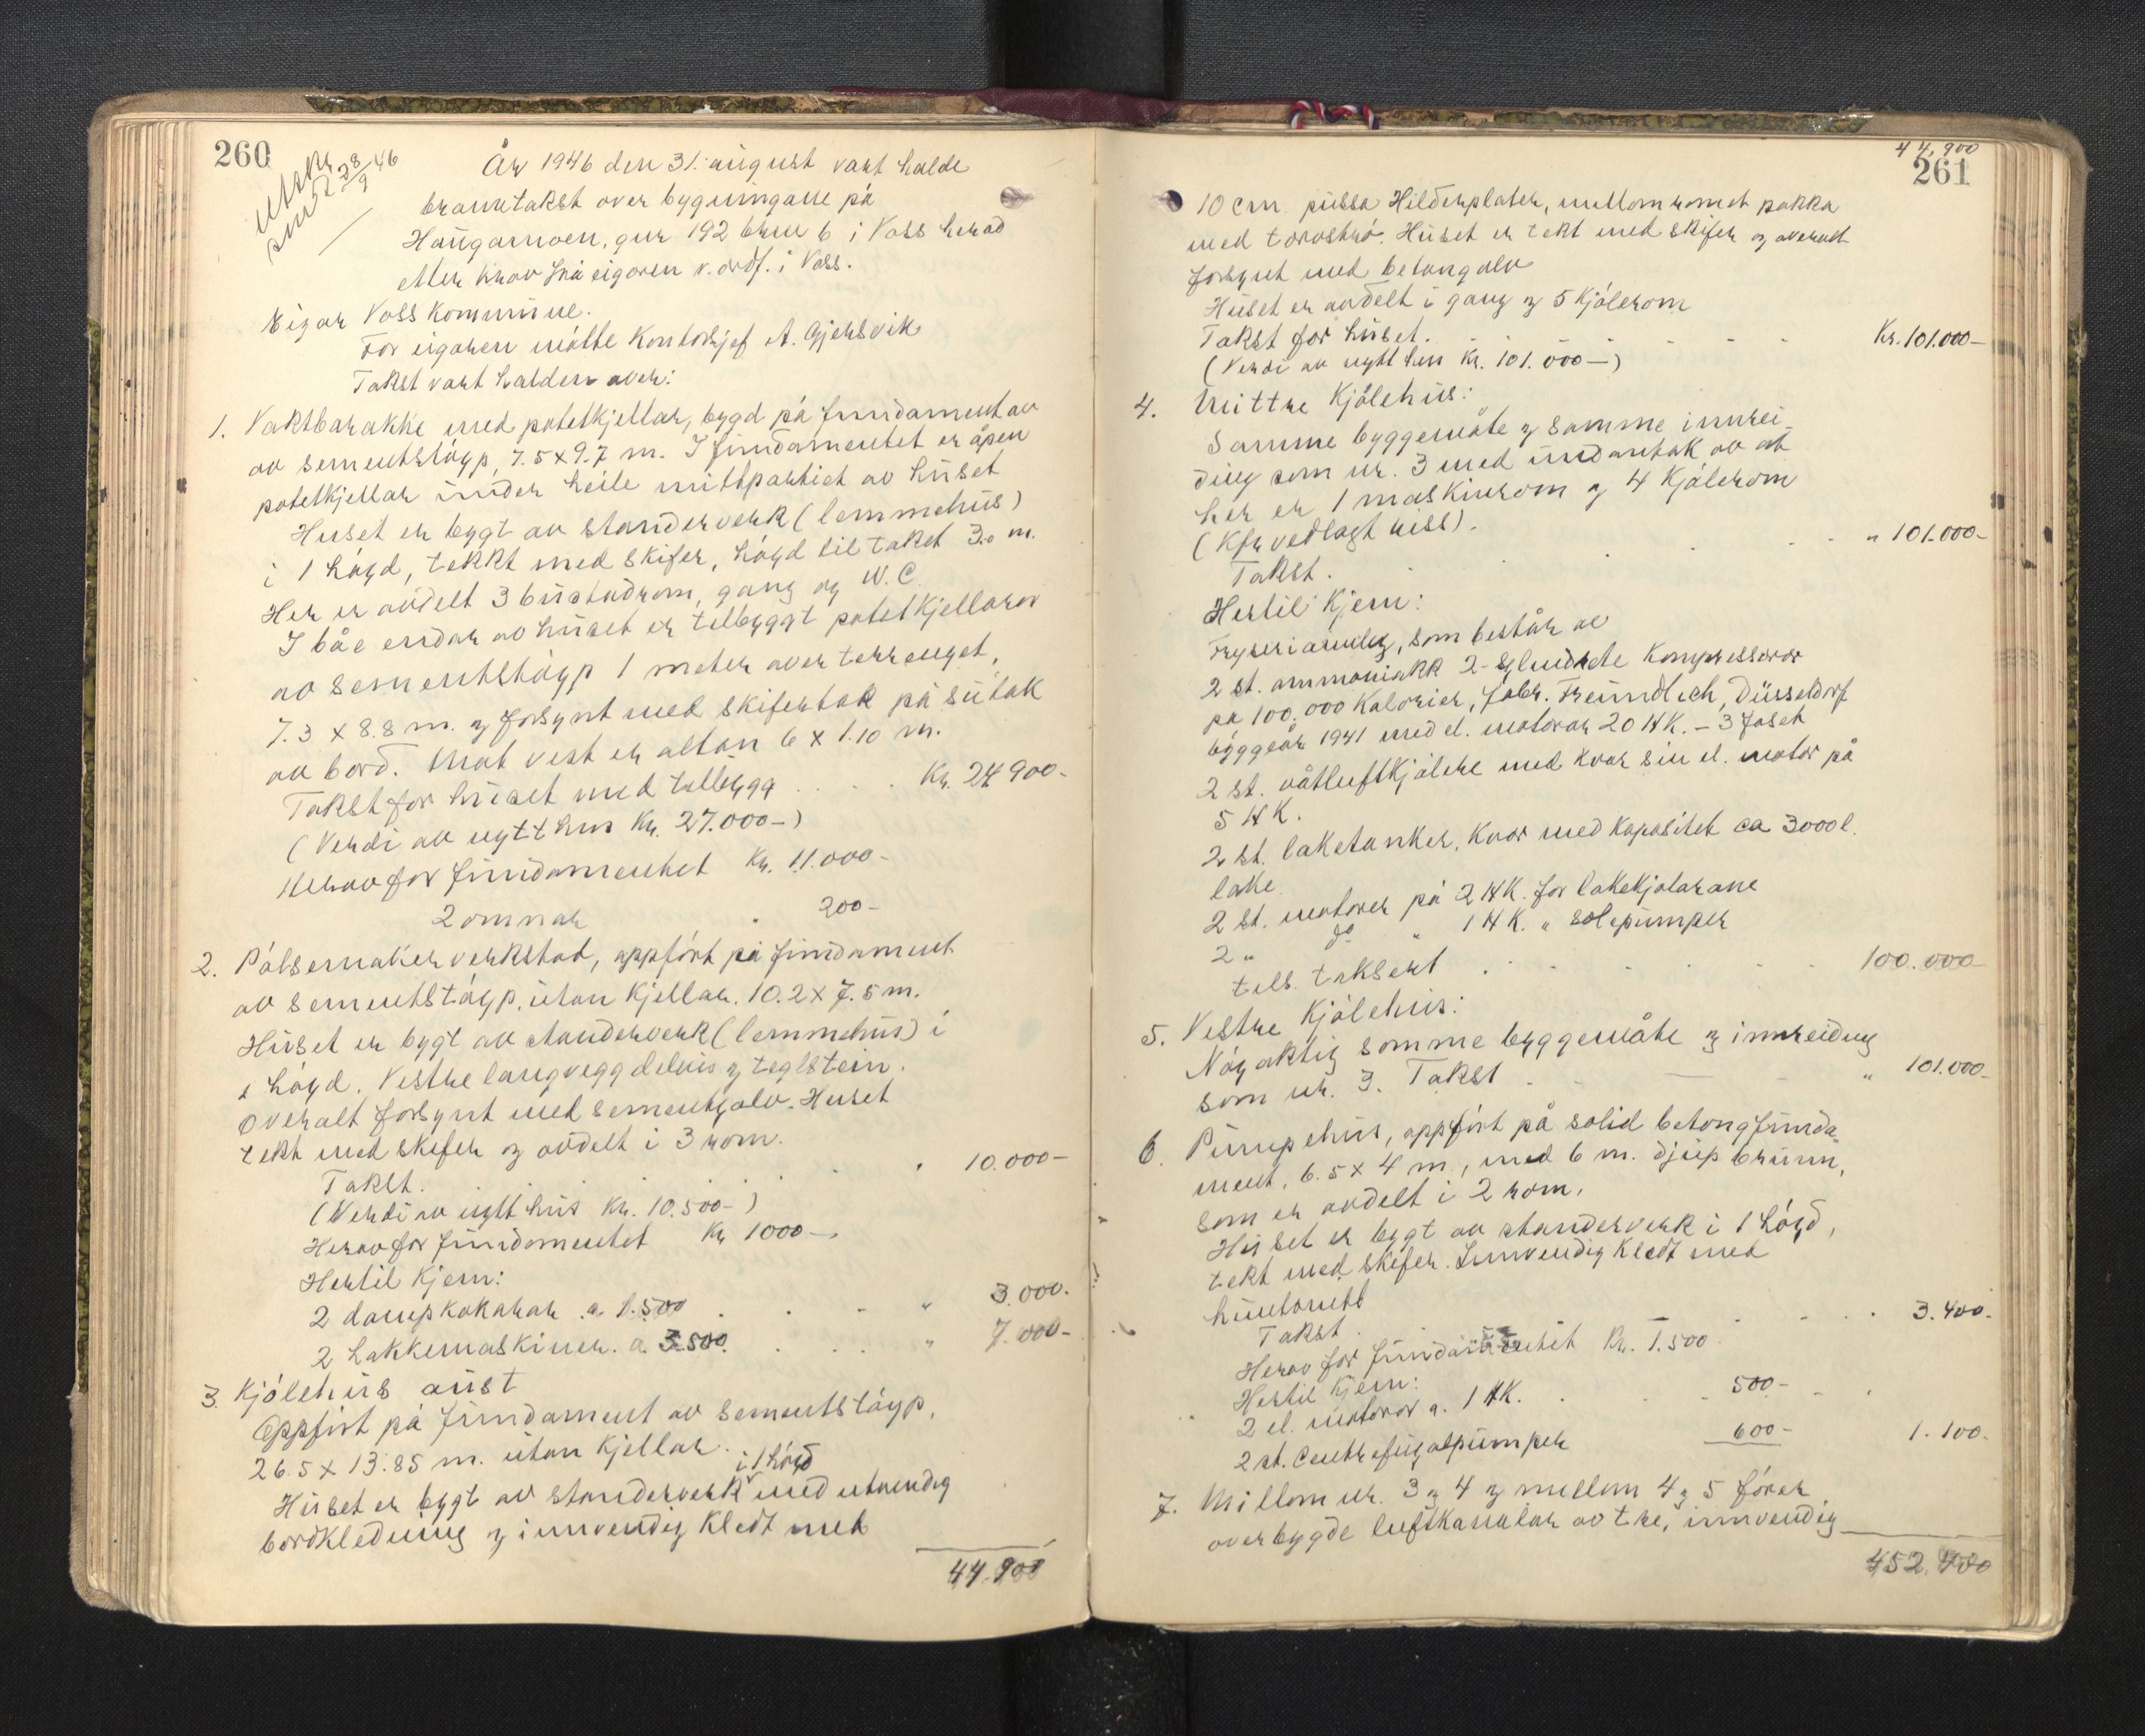 260
Utskr.
send 28/9 46
År 1946 den 31. august vart halde
branntakst over bygningane på
Haugamoen, gnr 192 bnr 6 i Voss herad
etter krav frå eigaren v. ordf. i Voss.
Eigar Voss Kommune.
For eigaren møtte Kontorsjef A. Gjersvik
Takst vart halden over:
1. Vaktbarakke med potetkjellar, bygd på fundament av
av sementstøyp, 7.5 x 9.7 m. I fundamentet er åpen
potetkjellar under heile mittpartiet av huset
Huset er bygt av standerverk (lemmehus)
i 1 høgd, tekkt med skifer, høgd til taket 3.0 m.
Her er avdelt 3 bustadrom, gang og W.C.
I båe endar av huset er tilbyggt potetkjellarar
av sementstøyp 1 meter over terrenget,
7.3 x 8.8 m. og forsynt med skifertak på sutak
av bord. Mot vest er altan 6 x 1.10 m.
Takst for huset med tilbygg . . . . Kr. 24 900-
(Verdi av nytt hus Kr. 27.000-)
Herav for fundamentet Kr. 11.000-
2 omnar " 200-
2. Pølsemakerverkstad, oppført på fundament
av sementstøyp, utan kjellar. 10.2 x 7.5 m.
Huset er bygt av standerverk (lemmehus) i
1 høgd. Vestre langvegg delvis og teglstein.
Overalt forsynt med sementgolv. Huset
tekt med skifer og avdelt i 3 rom.
Takst. . . . . . " 10.000-
(Verdi av nytt hus Kr. 10.500-)
Herav for fundamentet Kr 1000-
Hertil kjem:
2 dampkokarar a. 1.500 . . - " 3.000.
2 hakkemaskiner. a. 3.500. . . . " 7.000-
3. Kjølehus aust
Oppført på fundament av sementstøyp,
26.5 x 13.85 m. utan kjellar.
i 1 høgd
Huset er bygt av standerverk med utvendig
bordkledning og innvendig kledt med
44.900
44.900
261
10 cm. pussa Hilderplater, mellomromet pakka
med torvstrø. Huset er tekt med skifer og overalt
forsynt med betongolv
Huset er avdelt i gang og 5 kjølerom
Takst for huset. - - - - - Kr. 101.000-
(Verdi av nytt hus Kr. 101.000-)
4. Mittre Kjølehus:
Samme byggemåte og samme innrei-
ding som nr. 3 med undantak av at
her er 1 maskinrom og 4 kjølerom
(Kfr vedlagt riss).
Takst. . . . - - " 101.000-
Hertil kjem:
Fryserianlegg, som består av
2 st. ammoniakk 2-sylindrete kompressorar
på 100.000 Kalorier, fabr. Freundlich, Düsseldorf
byggeår 1941 med el. motorar 20 HK. - 3 faset
2 st. våtluftkjølere med kvar sin el. motor på
5 HK.
2 st. laketanker, kvar med kapasitet ca 3000 l.
lake.
2 st. motorer på 2 HK. for lakekjølarane
2 " do " 1 HK. " solepumper
tils. taksert . . - - - 100.000
5. Vestre Kjølehus:
Nøyaktig somme byggemåte og innreiding
som nr. 3. Takst - - " 101.000-
6. Pumpehus, oppført på solid betongfunda-
ment, 6.5 x 4 m., med 6 m. djup brunn,
som er avdelt i 2 rom.
Huset er bygt av standerverk i 1 høgd,
tekt med skifer. Innvendig kledt med
huntonitt
Takst . - - . . 3.400.
Herav for fundamentet Kr. 1.500
Hertil kjem:
2 el. motorar a. 1 HK. . . 500-
2 st. Centrefugalpumper 600- 1.100.
7. Millom nr. 3 og 4 og mellom 4 og 5 fører
overbygde luftkanalar av tre, innvendig
452.400